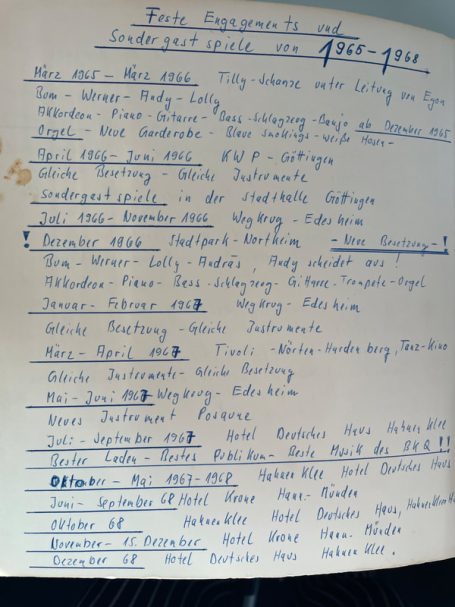 Feste Engagements und
Sondergastspiele von 1965-1968
März 1965 - März 1966 Tilly-Schanze unter Leitung von Egon
Bum - Werner - Andy - Lolly
Akkordeon - Piano - Gitarre - Bass - Schlagzeug - Banjo ab Dezember 1965
Orgel - Neue Garderobe - Blaue Smokings - weiße Hosen -
April 1966 - Juni 1966 KWP - Göttingen
Gleiche Besetzung - Gleiche Instrumente
Sondergastspiele in der Stadthalle Göttingen
Juli 1966 - November 1966 Wegkrug - Edesheim
! Dezember 1966 Stadtpark - Northeim - Neue Besetzung - !
Bum - Werner - Lolly - András, Andy scheidet aus!
Akkordeon - Piano - Bass - Schlagzeug - Gitarre - Trompete - Orgel
Januar - Februar 1967 Wegkrug - Edesheim
Gleiche Besetzung - Gleiche Instrumente
März - April 1967 Tivoli - Nörten-Hardenberg, Tanz-Kino
Gleiche Instrumente - Gleiche Besetzung
Mai - Juni 1967 Wegkrug - Edesheim
Neues Instrument Posaune
Juli - September 1967 Hotel Deutsches Haus Hahnen Klee
Bester Laden - Bestes Publikum - Beste Musik des BKQ!!
Oktober - Mai 1967-1968 Hahnen Klee Hotel Deutsches Haus
Juni - September 68 Hotel Krone Hann.-Münden
Oktober 68 Hahnen Klee Hotel Deutsches Haus,
November - 15. Dezember Hotel Krone Hann. Münden
Dezember 68 Hotel Deutsches Haus Hahnen Klee.